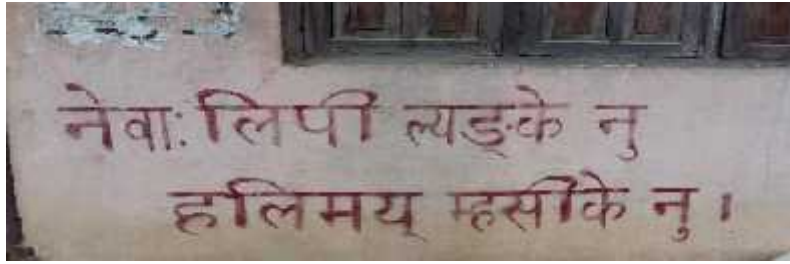 नेवा: लिपी ल्यङ्के नु
हलिमय् म्हसीके नु ।